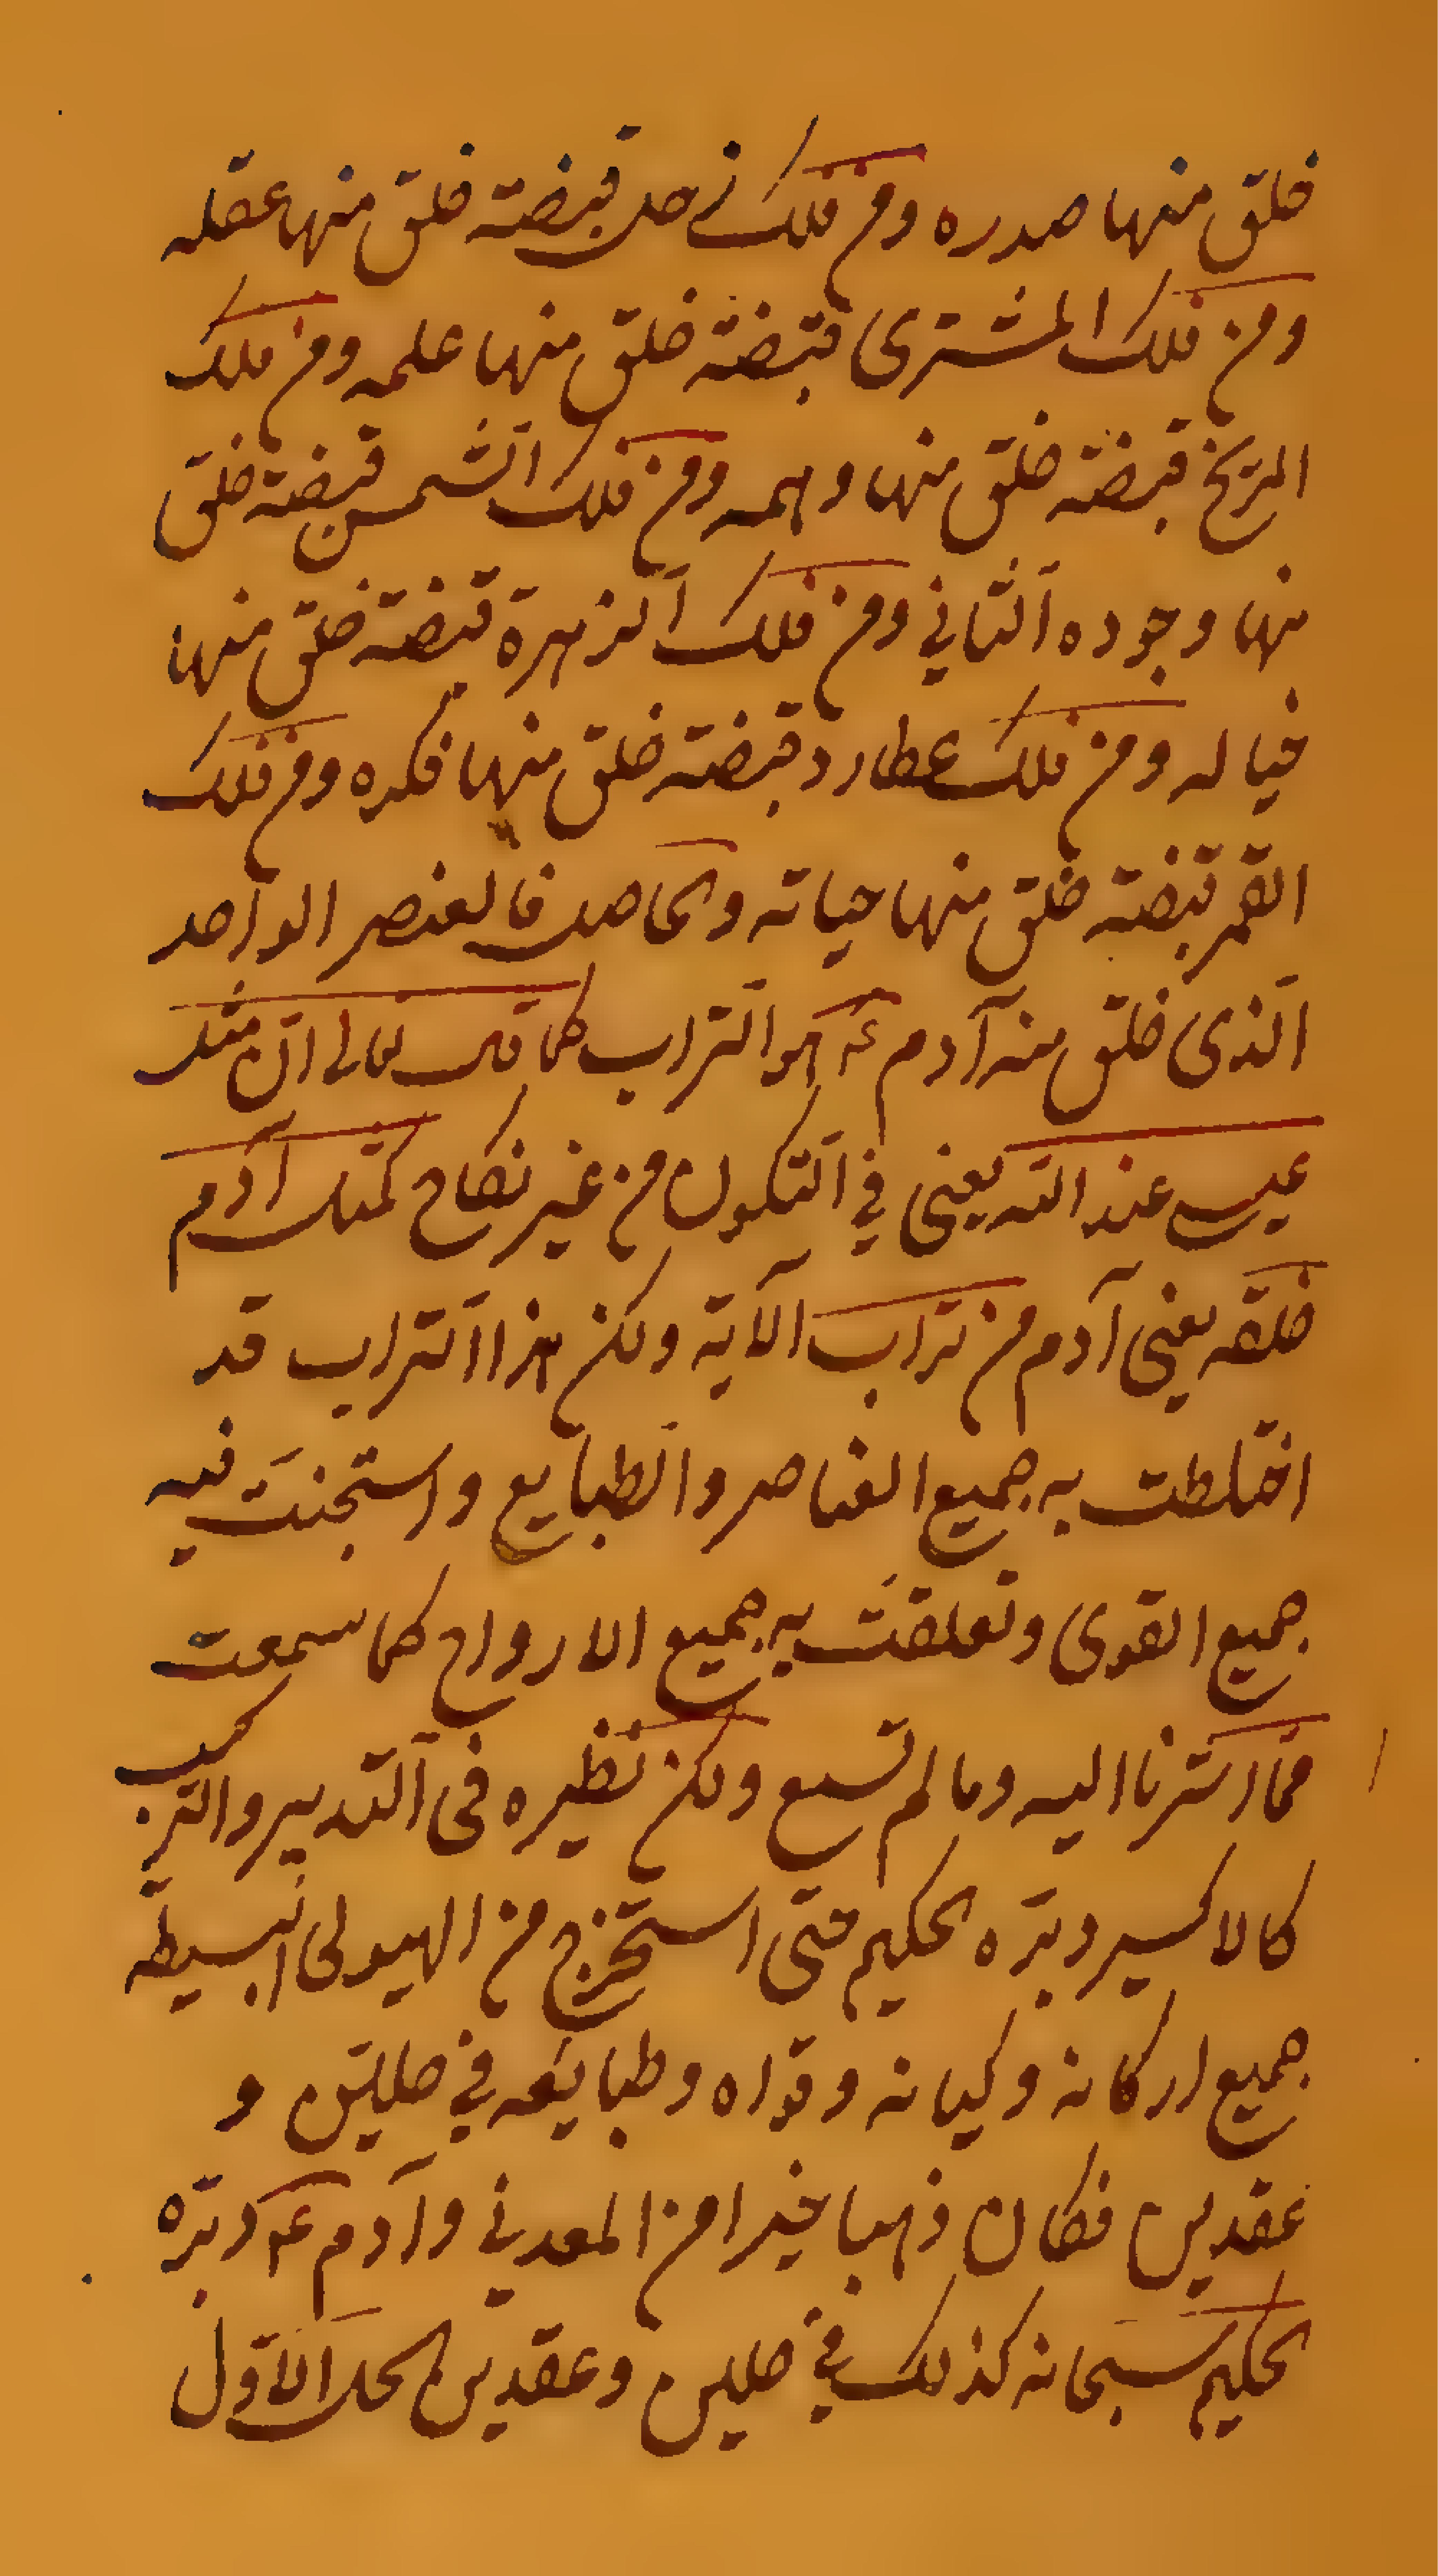 خلق منها صدره ومن فلك زحل قبضة خلق منها عقله
ومن فلك المشترى قبضة خلق منها علمه ومن فلك
المرّيخ قبضة خلق منها وهمه ومن فلك الشّمس قبضة خلق
منها وجوده الثّاني ومن فلك الزّهرة قبضة خلق منها
خياله ومن فلك عطارد قبضة خلق منها فكره ومن فلك
القمر قبضة خلق منها حياته والحاصل فالعنصر الواحد
الّذى خلق منه آدم ع هو التّراب كما قال تعالى انّ مثل
عيسى عند اللّه يعنى في التّكون من غير نكاح كمثل آدم
خلقه يعنى آدم من تراب الآية ولكن هذا التّراب قد
اختلطت به جميع العناصر والطبايع واستجنت فيه
جميع القوى وتعلقت به جميع الارواح كما سمعت
ممّا اشرنا اليه وما لم تسمع ولكن نظيره فى التّدبير والتّركيب
كالاكسير دبّره الحكيم حتى استخرج من الهيولى البسيطة
جميع اركانه وكيانه وقواه وطبايعه في حلين و
عقدين فكان ذهبا خيرا من المعدني وآدم ع دبّره
الحكيم سبحانه كذلك في حلين وعقدين الحل الاوّل